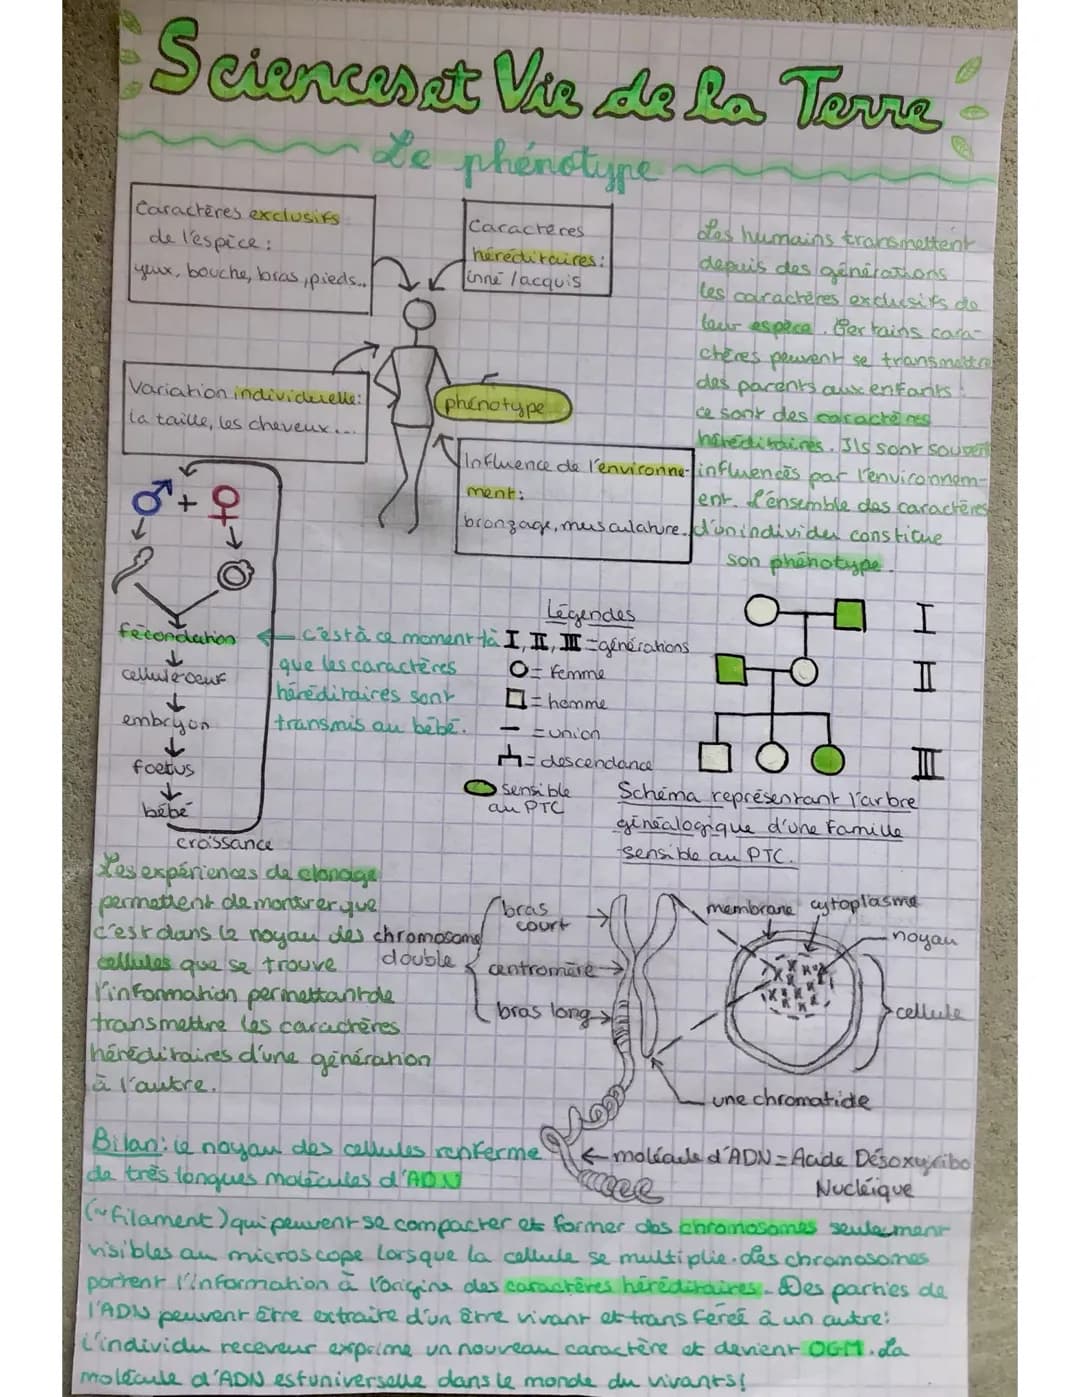 Sciences et Vie de la Terre
Le phénotype
Caractères exclusifs
de l'espèce :
yeux, bouche, bras, pieds...
Caractères
héréditaires :
inné / acquis
Variation individuelle :
la taille, les cheveux....
phénotype
Influence de l'environne-
ment :
bronzage, musculature..
Les humains transmettent
depuis des générations
les caractères exclusifs de
leur espèce. Certains cara-
ctères peuvent se transmettre
des parents aux enfants :
ce sont des caractères
héréditaires. Ils sont souvent
influencés par l'environnem-
ent. L'ensemble des caractères
d'un individu constitue
son phénotype.
♂ + ♀
fécondation
cellule oeuf
embryon
foetus
bébé
croissance
c'est à ce moment là
que les caractères
héréditaires sont
transmis au bébé.
Légendes
I, II, III = générations
= femme
= homme
= union
= descendance
sensible
au PTC
I
II
III
Schéma représentant l'arbre
généalogique d'une famille
sensible au PTC.
Les expériences de clonage
permettent de montrer que
c'est dans le noyau des
cellules que se trouve
l'information permettant de
transmettre les caractères
héréditaires d'une génération
à l'autre.
chromosome
double
bras
court
centromère
bras long
membrane
cytoplasme
noyau
cellule
une chromatide
molécule d'ADN = Acide Désoxyribo
Nucléique
Bilan : le noyau des cellules renferme
de très longues molécules d'ADN
(~filament) qui peuvent se compacter et former des chromosomes seulement
visibles au microscope lorsque la cellule se multiplie. Les chromosomes
portent l'information à l'origine des caractères héréditaires. Des parties de
l'ADN peuvent être extraite d'un être vivant et transférée à un autre :
L'individu receveur exprime un nouveau caractère et devient OGM. La
molécule d'ADN est universelle dans le monde du vivants !